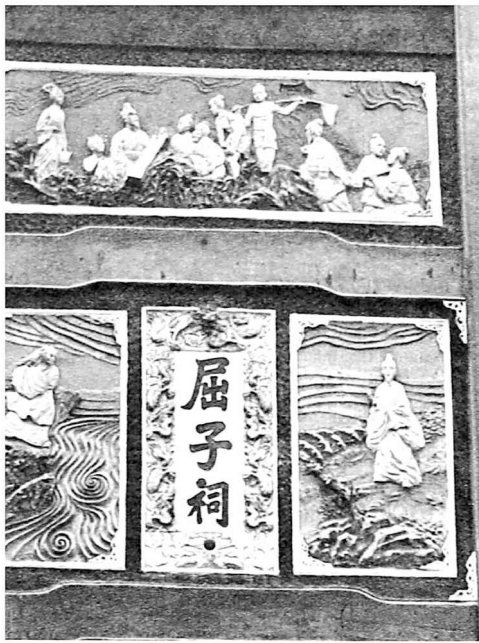 屈子祠